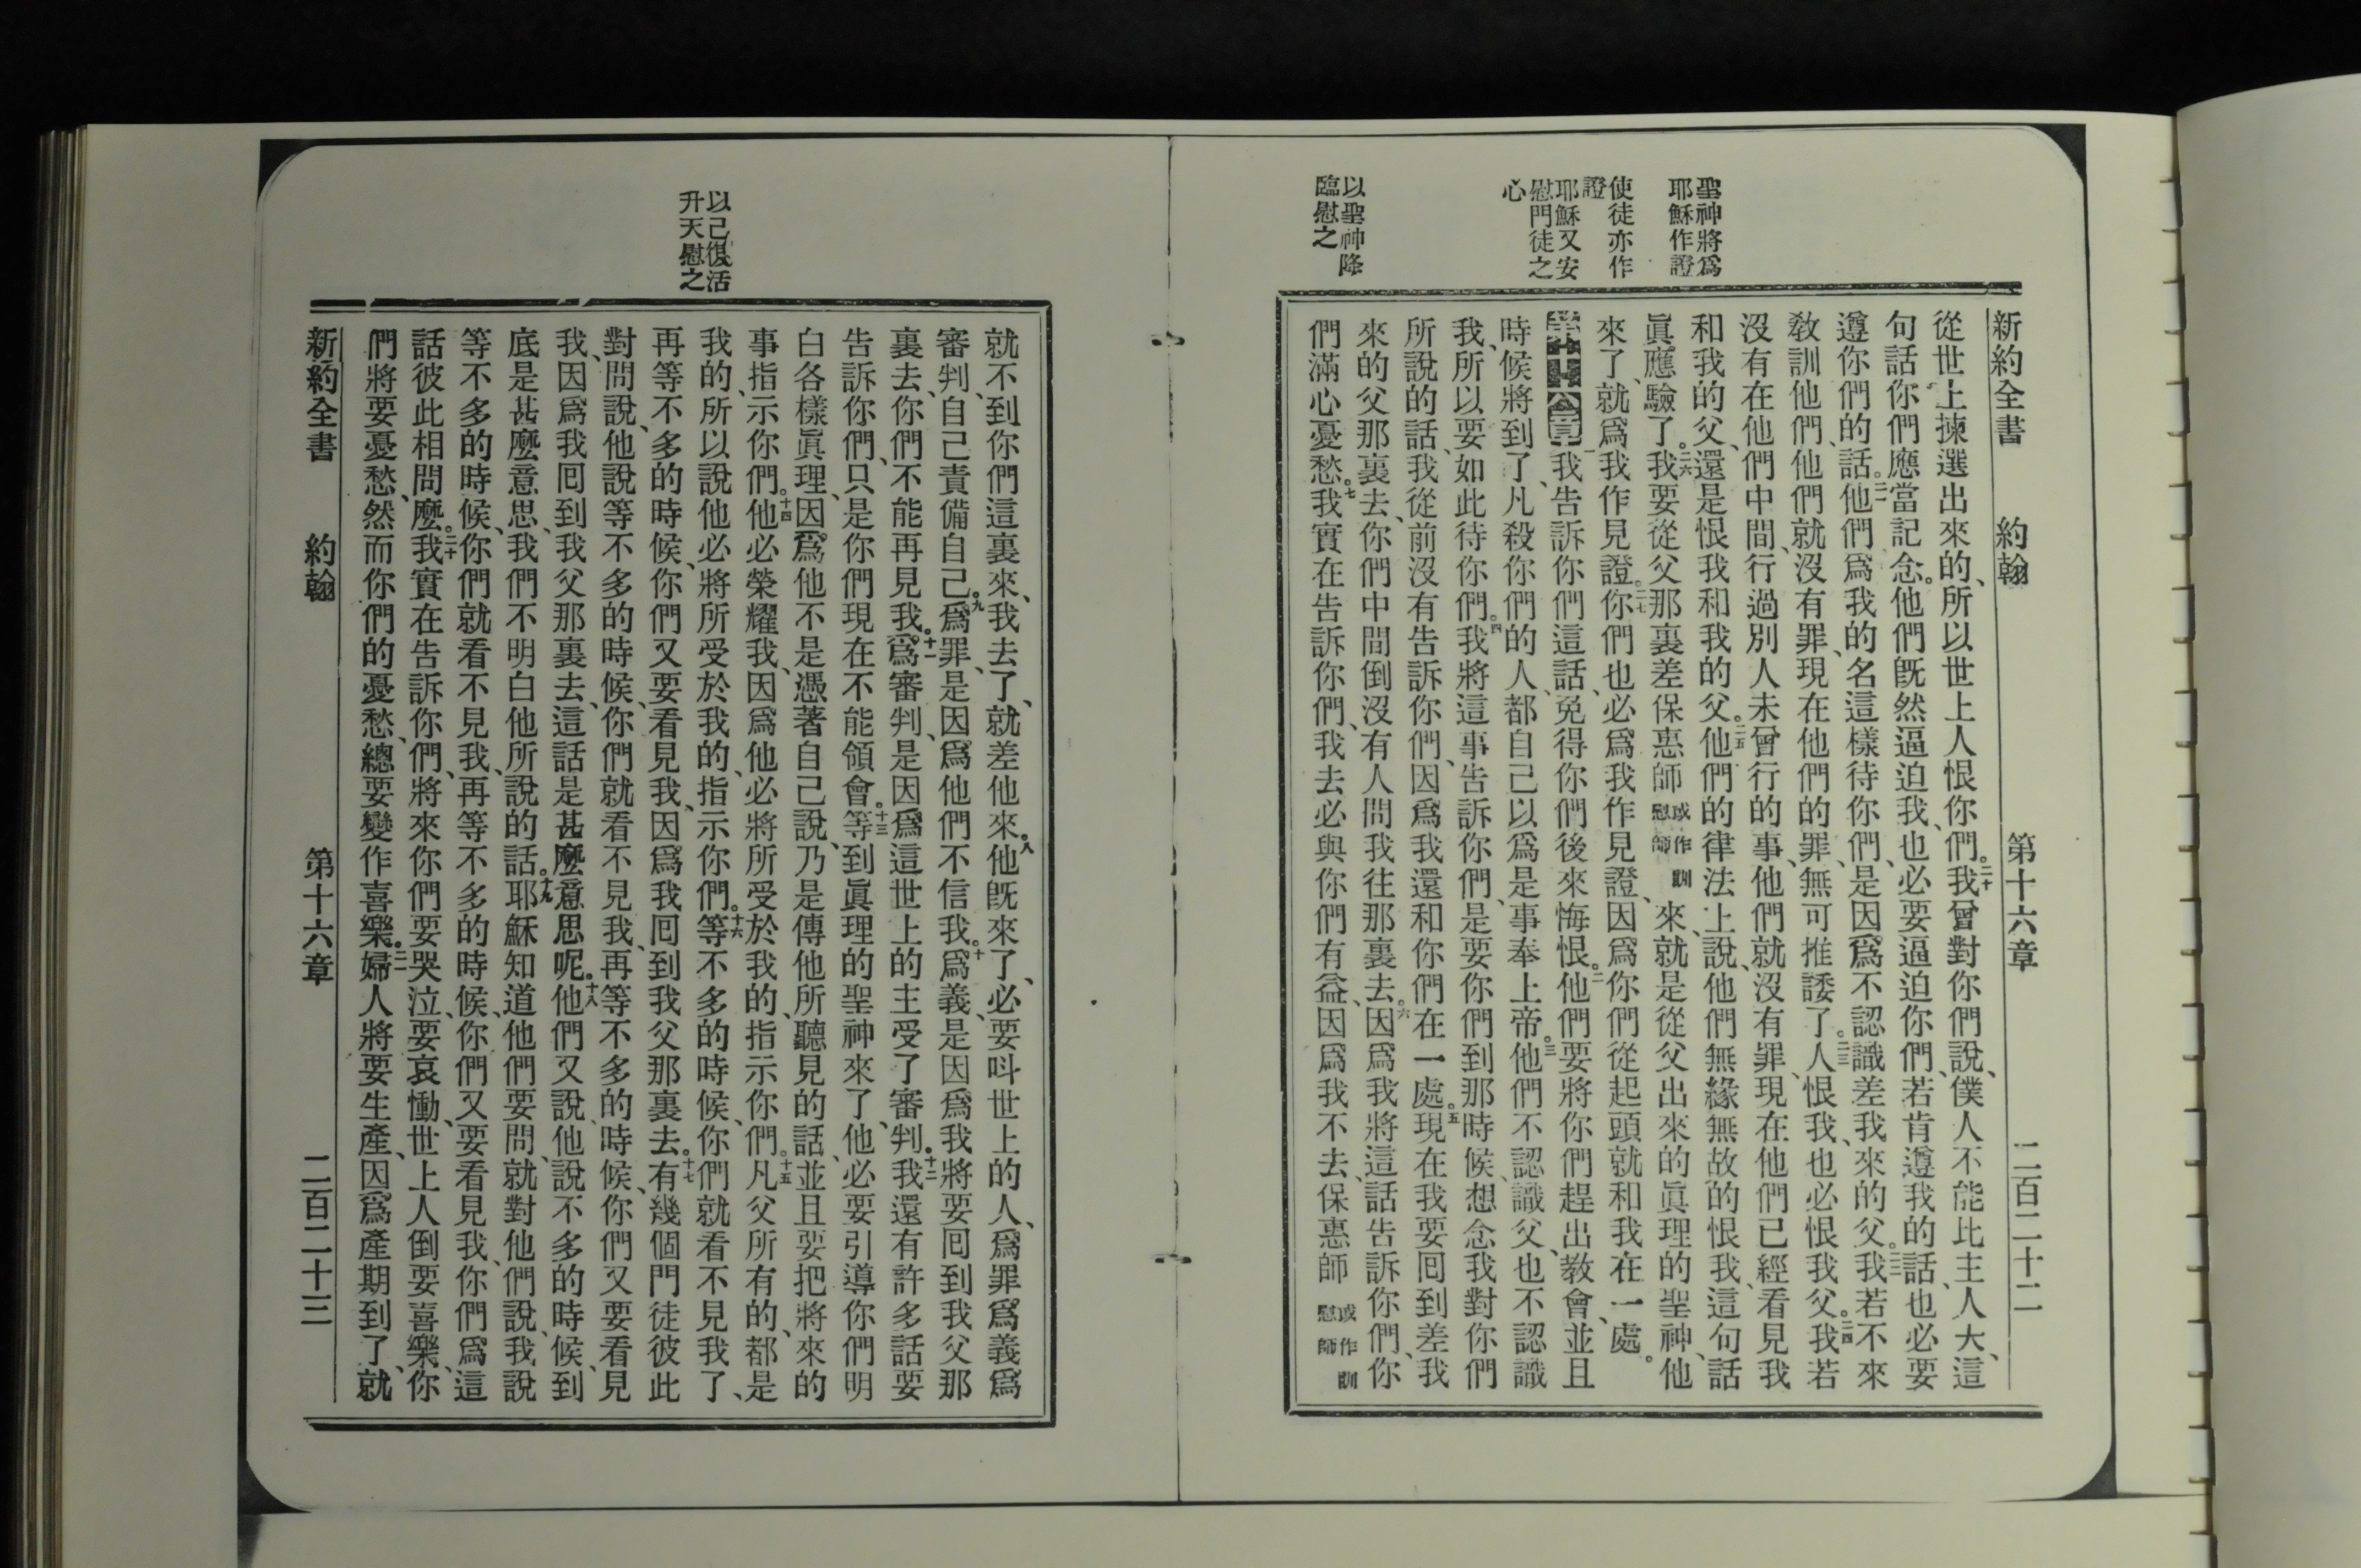 新約全書 約翰 第十六章 二百二十二
聖神將爲
耶穌作證
使徒亦作
證
耶穌又安
慰門徒之
心
以聖神降
臨慰之
從世上揀選出來的、所以世上人恨你們。二十我曾對你們說、僕人不能比主人大、這
句話你們應當記念。他們旣然逼迫我、也必要逼迫你們、若肯遵我的話、也必要
遵你們的話。二一他們爲我的名這樣待你們、是因爲不認識差我來的父。二二我若不來
敎訓他們、他們就沒有罪、現在他們的罪、無可推諉了。二三人恨我、也必恨我父。二四我若
沒有在他們中間、行過別人未曾行的事、他們就沒有罪、現在他們已經看見我
和我的父、還是恨我和我的父。二五他們的律法上說、他們無緣無故的恨我、這句話
眞應驗了。二六我要從父那裏差保惠師或作訓慰師來、就是從父出來的眞理的聖神、他
來了、就爲我作見證。二七你們也必爲我作見證、因爲你們從起頭就和我在一處。
第十六章一我告訴你們這話、免得你們後來悔恨。二他們要將你們趕出敎會、並且
時候將到了、凡殺你們的人、都自己以爲是事奉上帝。三他們不認識父、也不認識
我、所以要如此待你們。四我將這事告訴你們、是要你們到那時候、想念我對你們
所說的話、我從前沒有告訴你們、因爲我還和你們在一處。五現在我要囘到差我
來的父那裏去、你們中間倒沒有人問我往那裏去。六因爲我將這話告訴你們、你
們滿心憂愁。七我實在告訴你們、我去必與你們有益、因爲我不去、保惠師或作訓慰師
以己復活
升天慰之
就不到你們這裏來、我去了、就差他來。八他旣來了、必要呌世上的人、爲罪爲義爲
審判、自己責備自己。九爲罪、是因爲他們不信我。十爲義、是因爲我將要囘到我父那
裏去、你們不能再見我。十一爲審判、是因爲這世上的主受了審判。十二我還有許多話要
告訴你們、只是你們現在不能領會。十三等到眞理的聖神來了、他必要引導你們明
白各樣眞理、因爲他不是憑著自己說、乃是傳他所聽見的話、並且要把將來的
事指示你們。十四他必榮耀我、因爲他必將所受於我的、指示你們。十五凡父所有的、都是
我的、所以說他必將所受於我的、指示你們。十六等不多的時候、你們就看不見我了、
再等不多的時候、你們又要看見我、因爲我囘到我父那裏去。十七有幾個門徒彼此
對問說、他說等不多的時候、你們就看不見我、再等不多的時候、你們又要看見
我、因爲我囘到我父那裏去、這話是甚麼意思呢。十八他們又說、他說不多的時候、到
底是甚麼意思、我們不明白他所說的話。十九耶穌知道他們要問、就對他們說、我說
等不多的時候、你們就看不見我、再等不多的時候、你們又要看見我、你們爲這
話彼此相問麼。二十我實在告訴你們、將來你們要哭泣、要哀慟、世上人倒要喜樂、你
們將要憂愁、然而你們的憂愁、總要變作喜樂。二一婦人將要生產、因爲產期到了、就
新約全書 約翰 第十六章 二百二十三